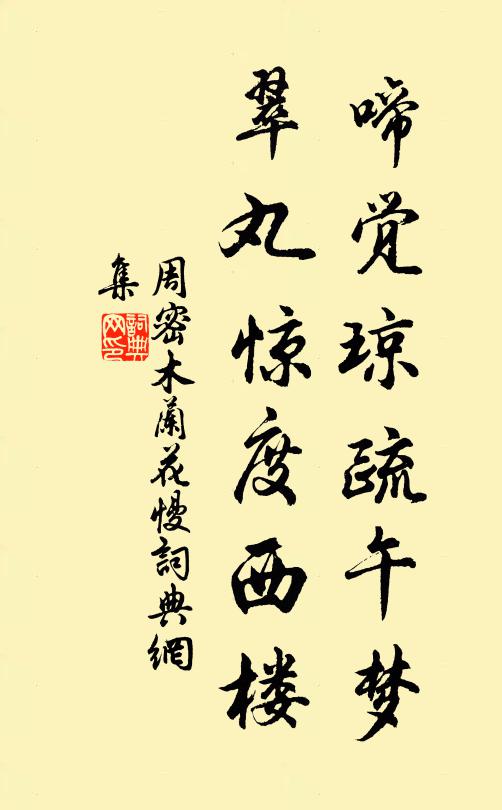 啼觉琼疏午梦
翠丸惊度西楼
周密木蘭花慢詞典網
集
詞典
网印